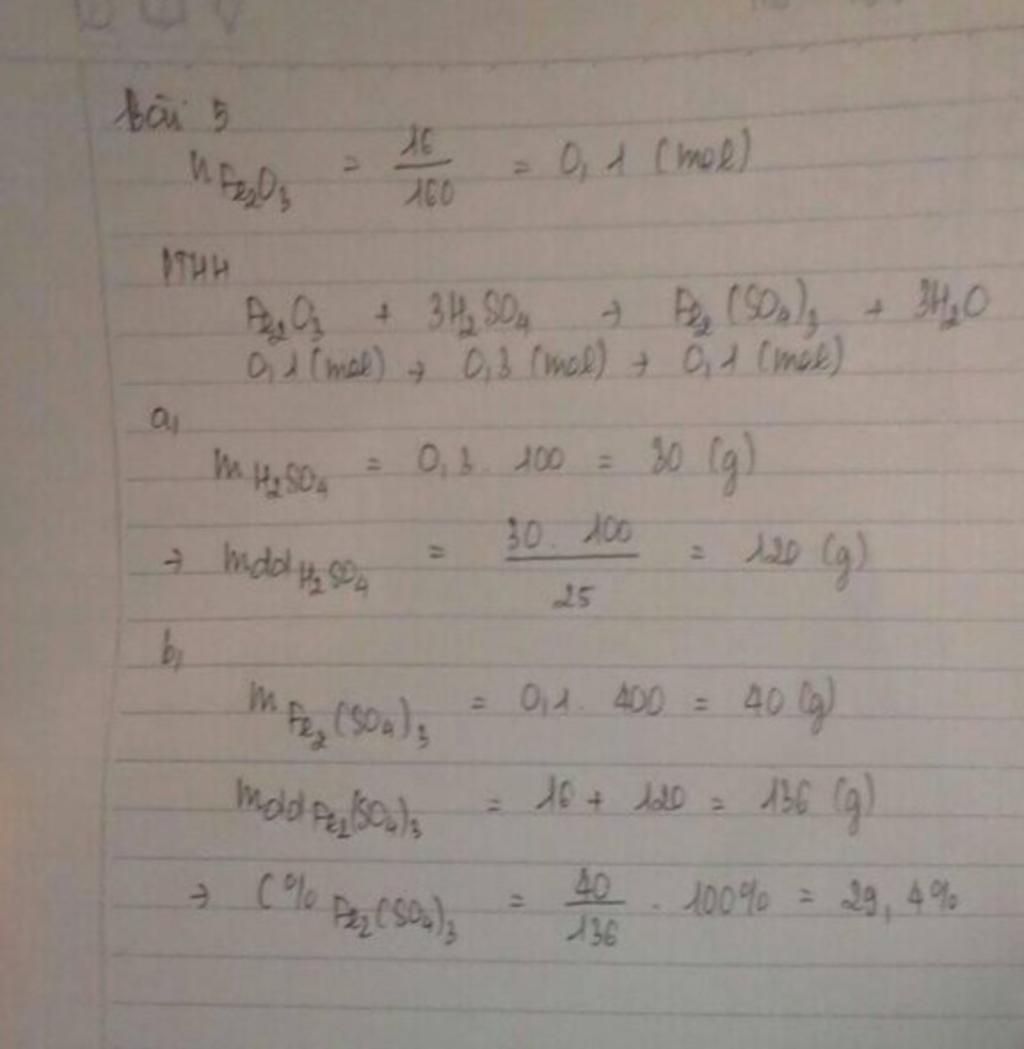 Bài 5
n Fe₂O₃ = 16/160 = 0,1 (mol)
PTHH
Fe₂O₃ + 3H₂SO₄ → Fe₂(SO₄)₃ + 3H₂O
0,1 (mol) → 0,3 (mol) → 0,1 (mol)
a,
m H₂SO₄ = 0,3 . 100 = 30 (g)
→ mdd H₂SO₄ = 30 . 100 / 25 = 120 (g)
b,
m Fe₂(SO₄)₃ = 0,1 . 400 = 40 (g)
mdd Fe₂(SO₄)₃ = 16 + 120 = 136 (g)
→ C% Fe₂(SO₄)₃ = 40/136 . 100% = 29,4%